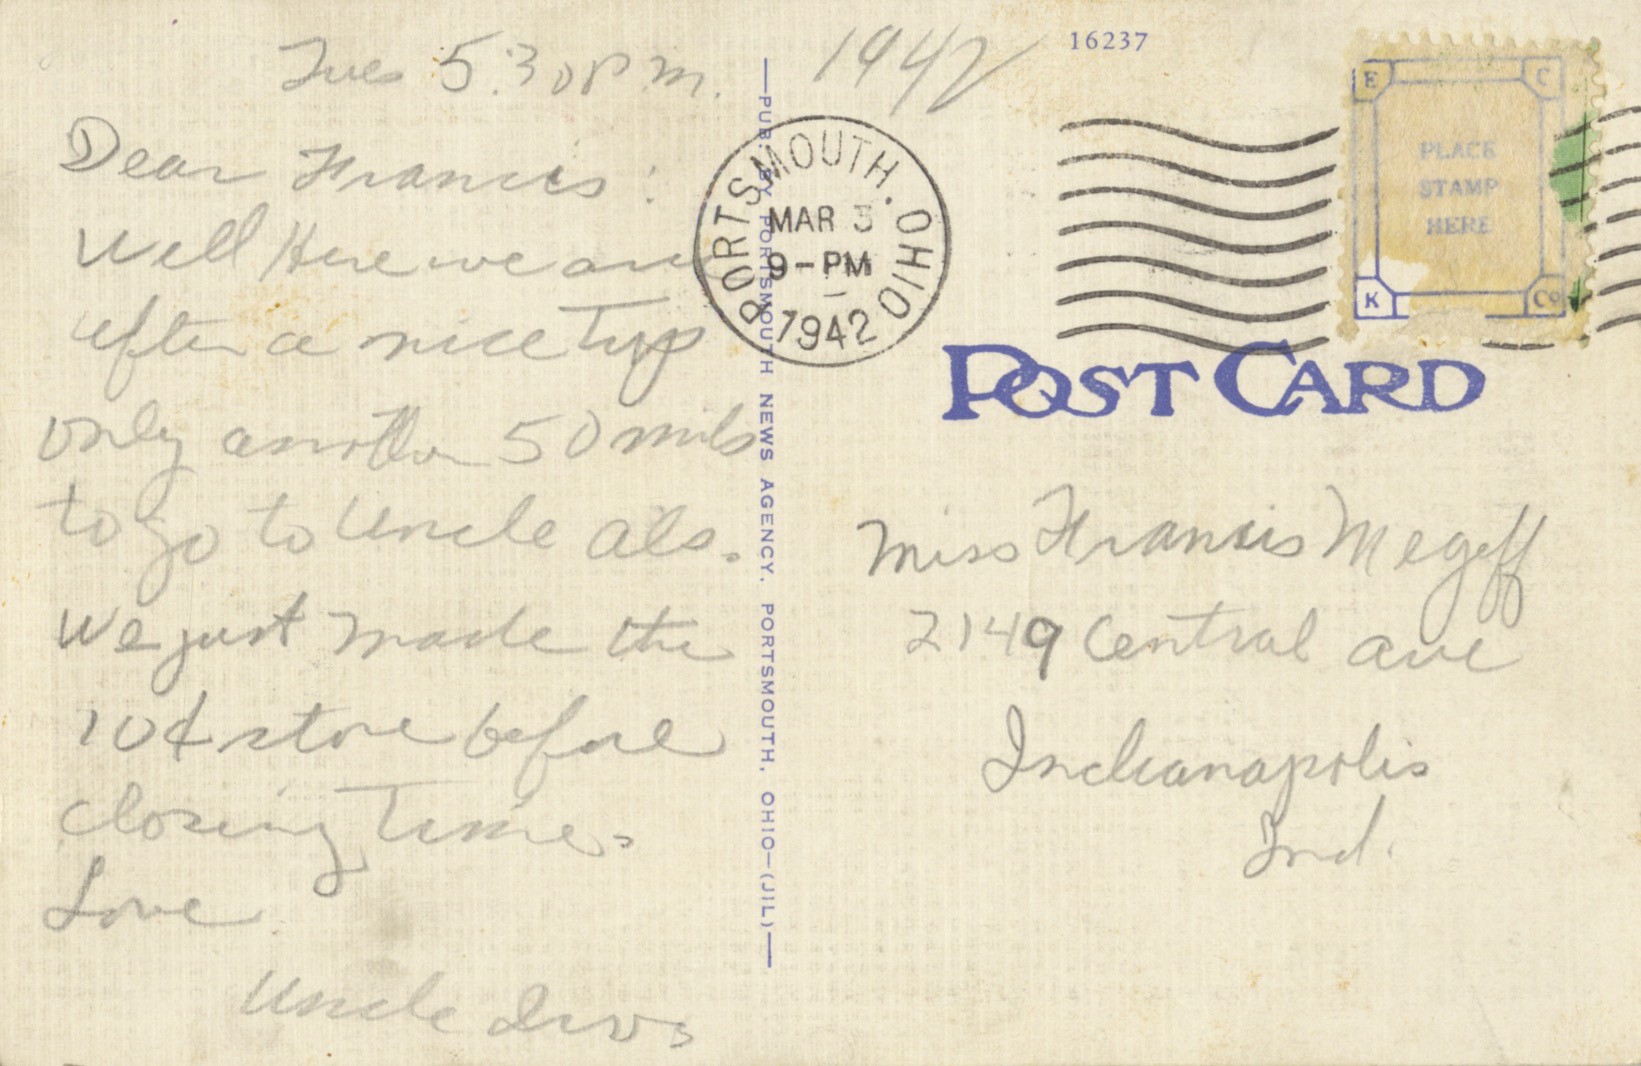 Tues 5:30 P.M.
Dear Francis:
Well Here we are
after a nice Trip
only another 50 miles
to go to Uncle Als.
We just made the
10¢ store before
closing Time.
Love
Uncle
1942
16237
PORTSMOUTH, OHIO
MAR 3
9-PM
1942
E C
PLACE
STAMP
HERE
K Co
POST CARD
PUB. BY PORTSMOUTH NEWS AGENCY, PORTSMOUTH, OHIO—(JIL)
Miss Francis Megeff
2149 Central Ave
Indianapolis
Ind.